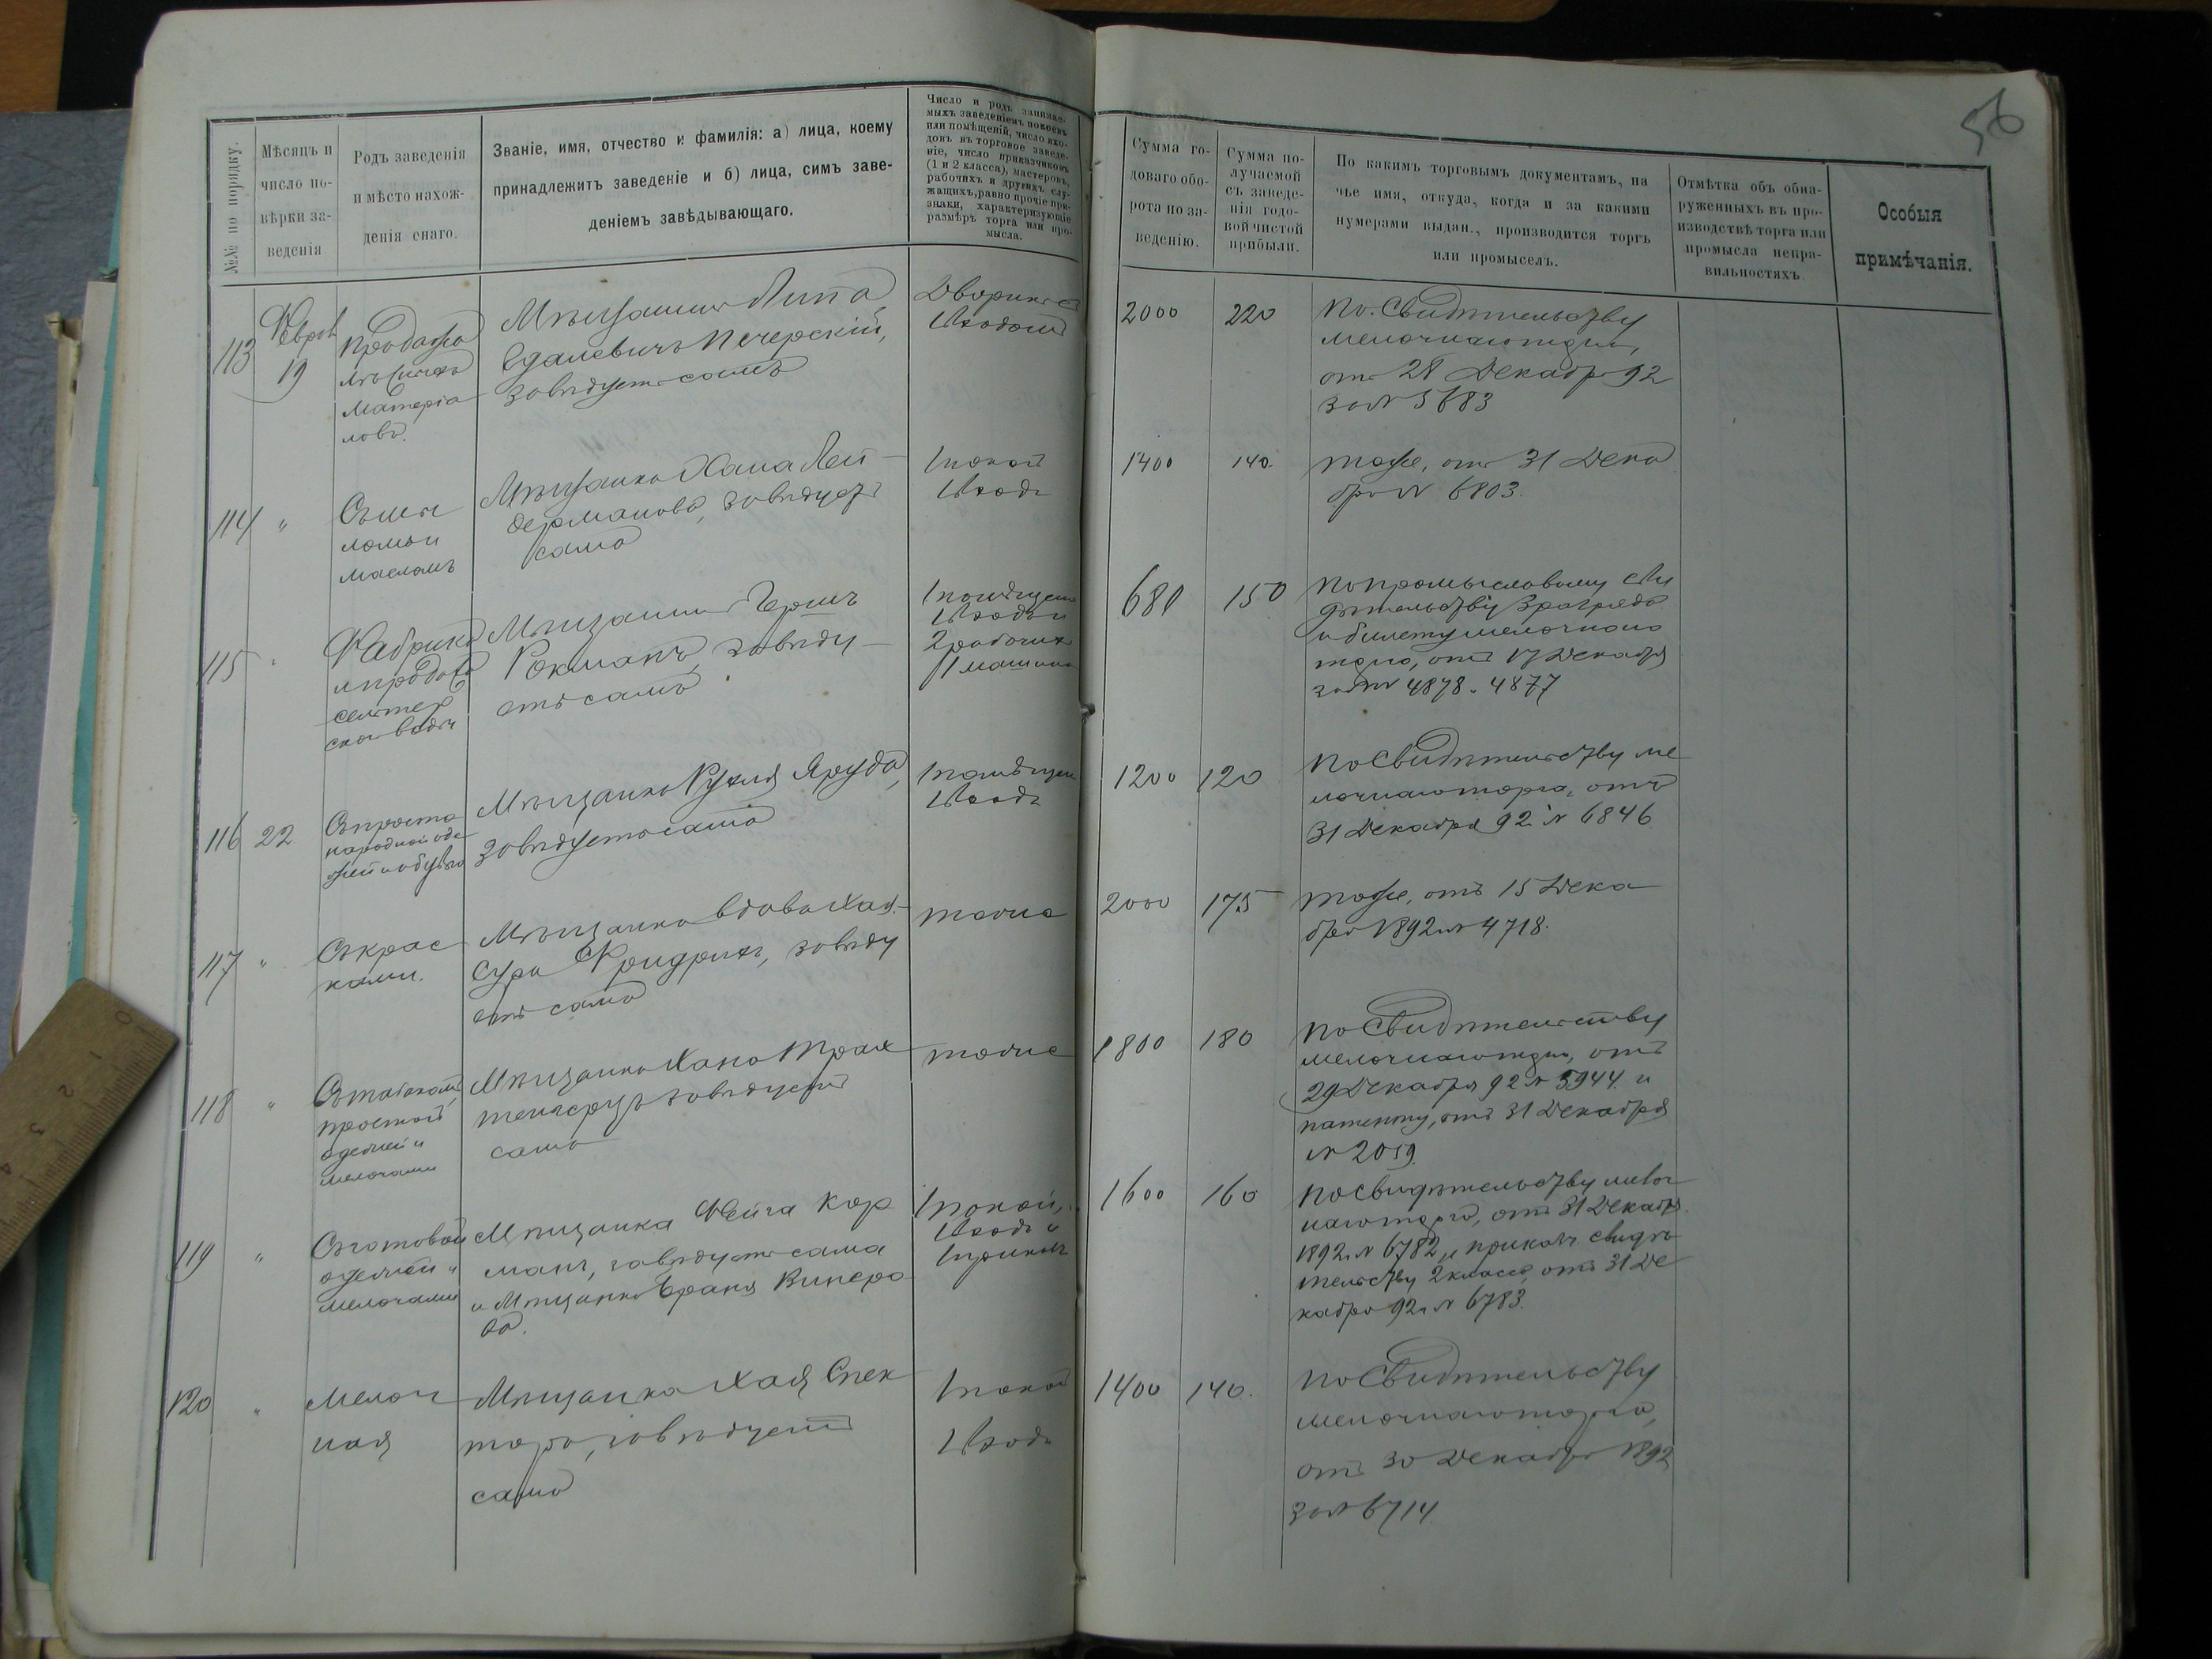 56
№№ по порядку.
Мѣсяцъ и
число по-
вѣрки за-
веденія
Родъ заведенія
и мѣсто нахож-
денія онаго.
Званіе, имя, отчество и фамилія: а) лица, коему
принадлежитъ заведеніе и б) лица, симъ заве-
деніемъ завѣдывающаго.
Число и родъ занимае-
мыхъ заведеніемъ покоевъ
или помѣщеній, число вхо-
довъ въ торговое заведе-
ніе, число приказчиковъ
(1 и 2 класса), мастеровъ,
рабочихъ и другихъ слу-
жащихъ, равно прочіе при-
знаки, характеризующіе
размѣръ торга или про-
мысла.
Сумма го-
доваго обо-
рота по за-
веденію.
Сумма по-
лучаемой
съ заведе-
нія годо-
вой чистой
прибыли.
По какимъ торговымъ документамъ, на
чье имя, откуда, когда и за какими
нумерами выдан., производится торгъ
или промыселъ.
Отмѣтка объ обна-
руженныхъ въ про-
изводствѣ торга или
промысла непра-
вильностяхъ
Особыя
примѣчанія.
113
19
Продажа
лѣсныхъ
матеріа
ловъ.
Мѣщанинъ Липа
Печерскій,
завѣдуетъ самъ
2000
220
По Свидѣтельству
мелочнаго торга,
отъ 28 Декабря 92
за № 5683
114
"
Съ мы
ломъ и
масломъ
Мѣщанка Хана Лей-
дерманова, завѣдуетъ
сама
1 покой
1 входъ
1400
140.
тоже, отъ 31 Дека
бря № 6803.
115
"
Фабрика
и продажа
сельтер
ской воды
Мѣщанинъ Гершъ
Рокманъ, завѣду-
етъ самъ
1 помѣщен
1 входъ и
2 рабочихъ
1 машина
681
150
По промысловому сви
дѣтельству 3 разряда
и билету мелочнаго
торга, отъ 17 Декабря
за №№ 4878 и 4877
116
22
Съ просто
народной оде
жей и обувью
Мѣщанка Рухля Яруда,
завѣдуетъ сама
1 помѣщен
1 входъ
1200
120
По Свидѣтельству ме
лочнаго торга, отъ
31 Декабря 92 № 6846
117
"
Съ крас
ками.
Мѣщанка вдова Хая-
Сура Фридрихъ, завѣду
етъ сама
тоже
2000
175
тоже, отъ 15 Дека
бря 1892 № 4718.
118
"
Съ табакомъ,
простой
одежей и
мелочами
Мѣщанка Хана Трах
тенгерцъ завѣдуетъ
сама
тоже
1800
180
По Свидѣтельству
мелочнаго торга, отъ
29 Декабря 92 № 5944 и
патенту, отъ 31 Декабря
№ 2059.
119
"
Съ готовой
одежей и
мелочами
Мѣщанка Фейга Кор
манъ, завѣдуетъ сама
и Мѣщанка Браня Винеро
ва.
1 покой,
1 входъ и
1 прикащ
1600
160
По свидѣтельству мелоч
наго торга, отъ 31 Декабря
1892 № 6782 и приказч. свидѣ
тельству 2 класса, отъ 31 Де
кабря 92 г. № 6783.
120
"
Мелоч
ная
Мѣщанка Хая Спек
торъ, завѣдуетъ
сама
1 покой
1 входъ
1400
140.
По Свидѣтельству
мелочнаго торга,
отъ 30 Декабря 1892
за № 6714